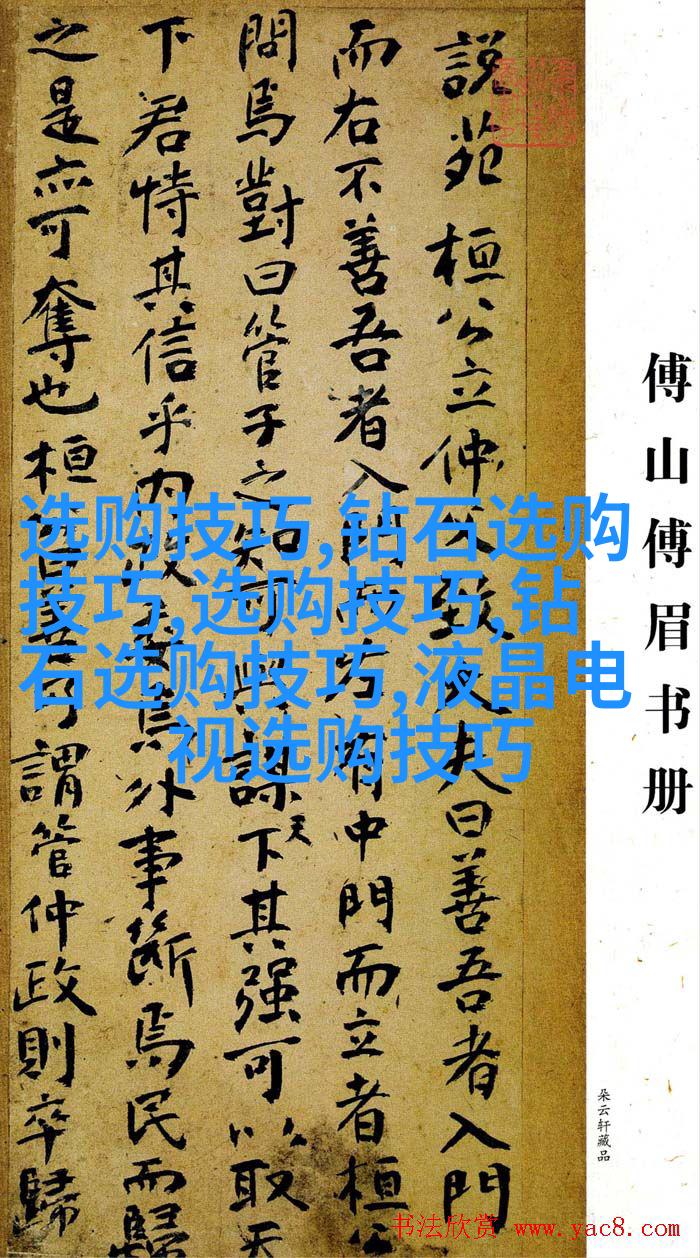 说苑 桓公立仲父致大夫曰善吾者入門
而右不善吾者入門而左有中門而立者桓公
問焉對曰管子之知可與謀天下其强可以取天
下君恃其信乎内政委焉外事斷焉民而歸
之是亦可奪也桓公曰善 謂管仲政則卒歸
傅山傅眉书册
朵云轩藏品
选购技巧,钻石选购
技巧,选购技巧,钻
石选购技巧,液晶电
视选购技巧
书法欣赏 www.yac8.com